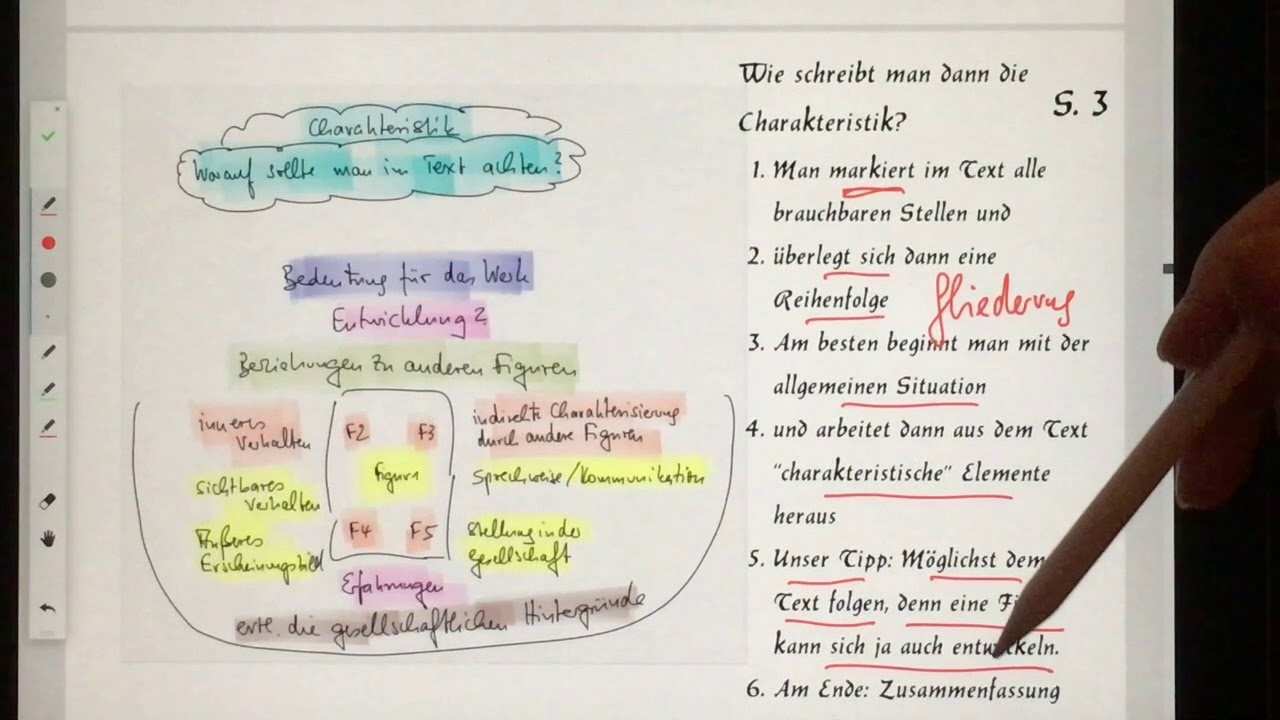 Charakteristik
Worauf sollte man im Text achten?
Bedeutung für das Werk
Entwicklung?
Beziehungen zu anderen Figuren
inneres
Verhalten
F2 F3
indirekte Charakterisierung
durch andere Figuren
sichtbares
Verhalten
Figur 1
Sprechweise/Kommunikation
Äußeres
Erscheinungsbild
F4 F5
Stellung in der
Gesellschaft
Erfahrungen
evtl. die gesellschaftlichen Hintergründe
Wie schreibt man dann die
Charakteristik?
S. 3
1. Man markiert im Text alle
brauchbaren Stellen und
2. überlegt sich dann eine
Reihenfolge
Gliederung
3. Am besten beginnt man mit der
allgemeinen Situation
4. und arbeitet dann aus dem Text
"charakteristische" Elemente
heraus
5. Unser Tipp: Möglichst dem
Text folgen, denn eine
kann sich ja auch entwickeln.
6. Am Ende: Zusammenfassung